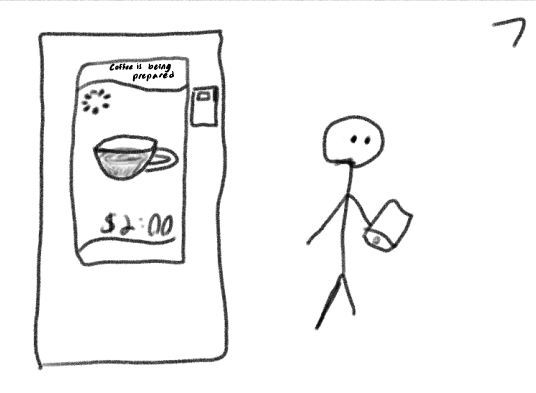 Coffee is being
prepared
$2:00